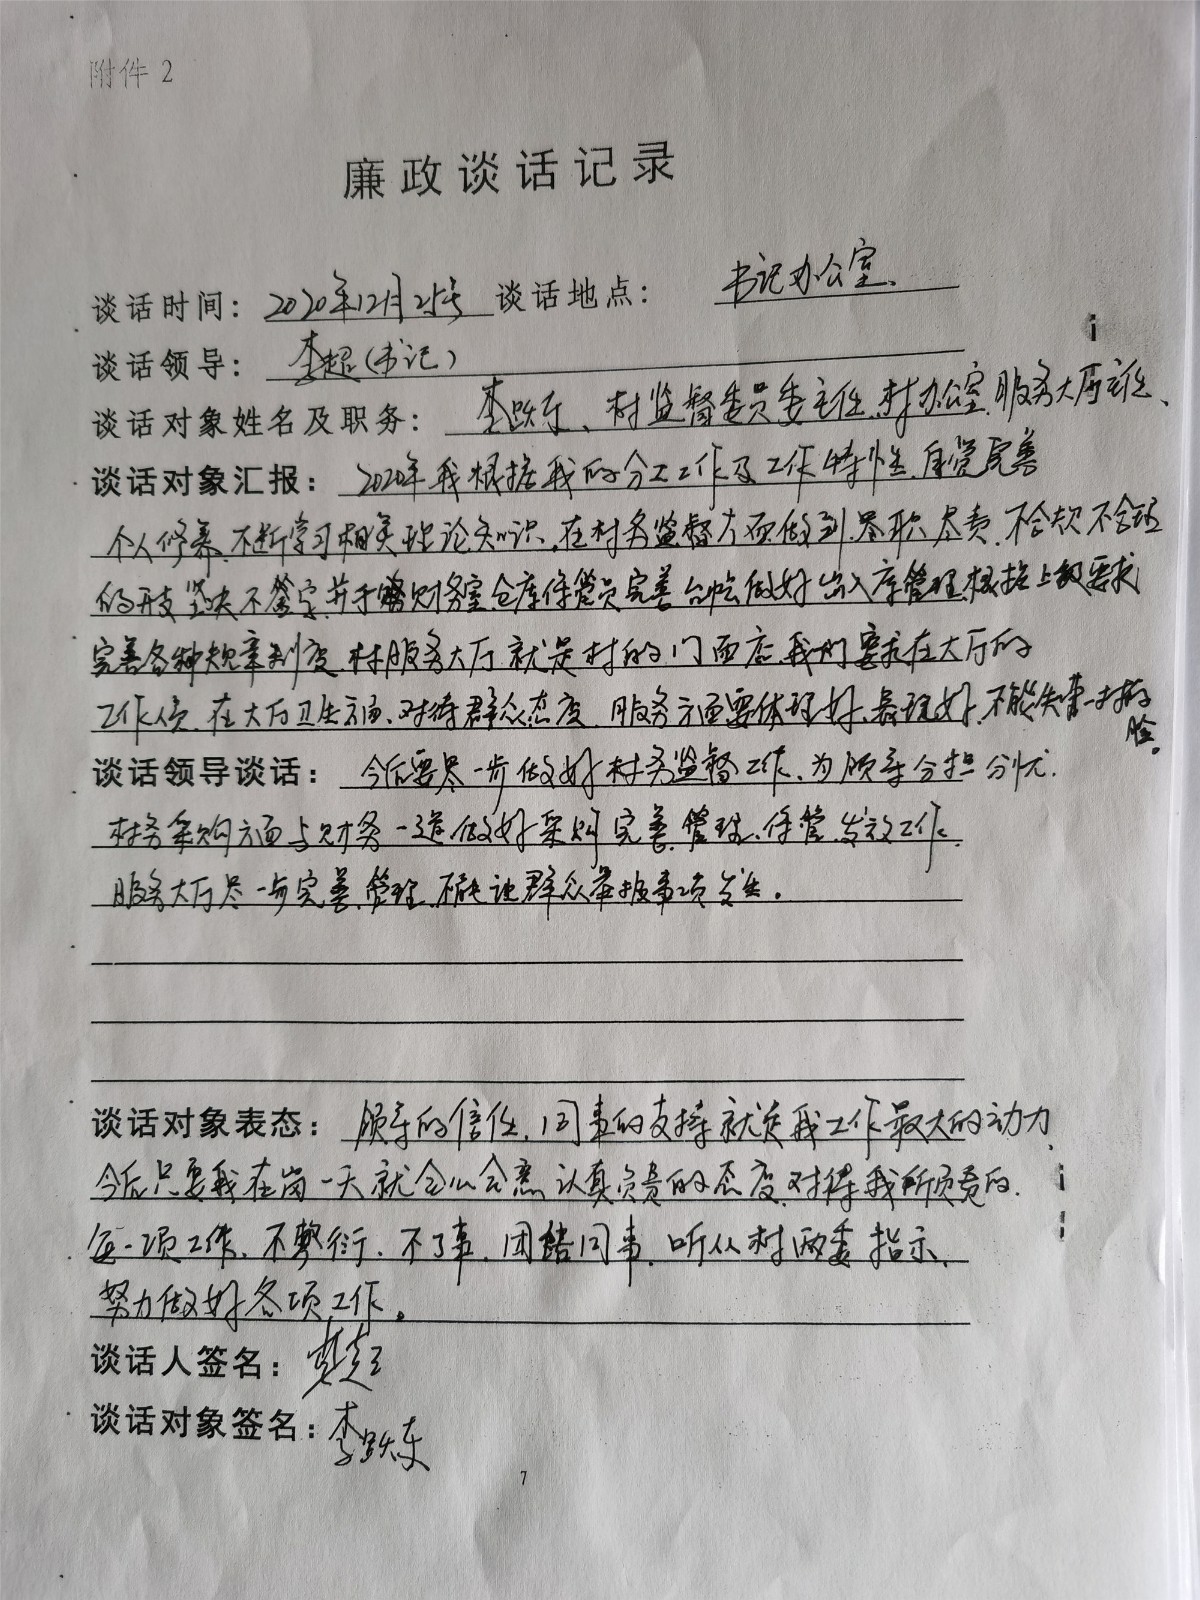 附件 2
廉政谈话记录
谈话时间：2020年12月25号 谈话地点：书记办公室、
谈话领导：李超（书记）
谈话对象姓名及职务：李跃东、村监督委员委主任、村办公室、服务大厅主任、
谈话对象汇报：2020年我根据我的分工工作及工作特性、自觉完善
个人修养、不断学习相关理论知识。在村务监督方面做到尽职尽责，不合规不合理
的开支坚决不签字，并于财务室仓库保管员完善台帐做好出入库管理，根据上级要求
完善各种规章制度，村服务大厅就是村的门面店，我们要求在大厅的
工作人员，在大厅卫生方面、对待群众态度、服务方面要体现好、表现好，不能失一村的
脸。
谈话领导谈话：今后要尽一步做好村务监督工作、为领导分担分忧.
村务采购方面与财务一道做好采购完善、管理、保管、发放工作.
服务大厅尽一步完善、管理、不能让群众举报事项发生。
谈话对象表态：领导的信任，同事的支持就是我工作最大的动力、
今后只要我在岗一天就全心全意认真负责的态度对待我所负责的.
每一项工作、不敷衍、不了事、团结同事、听从村两委指示、
努力做好各项工作。
谈话人签名：李超
谈话对象签名：李跃东
7